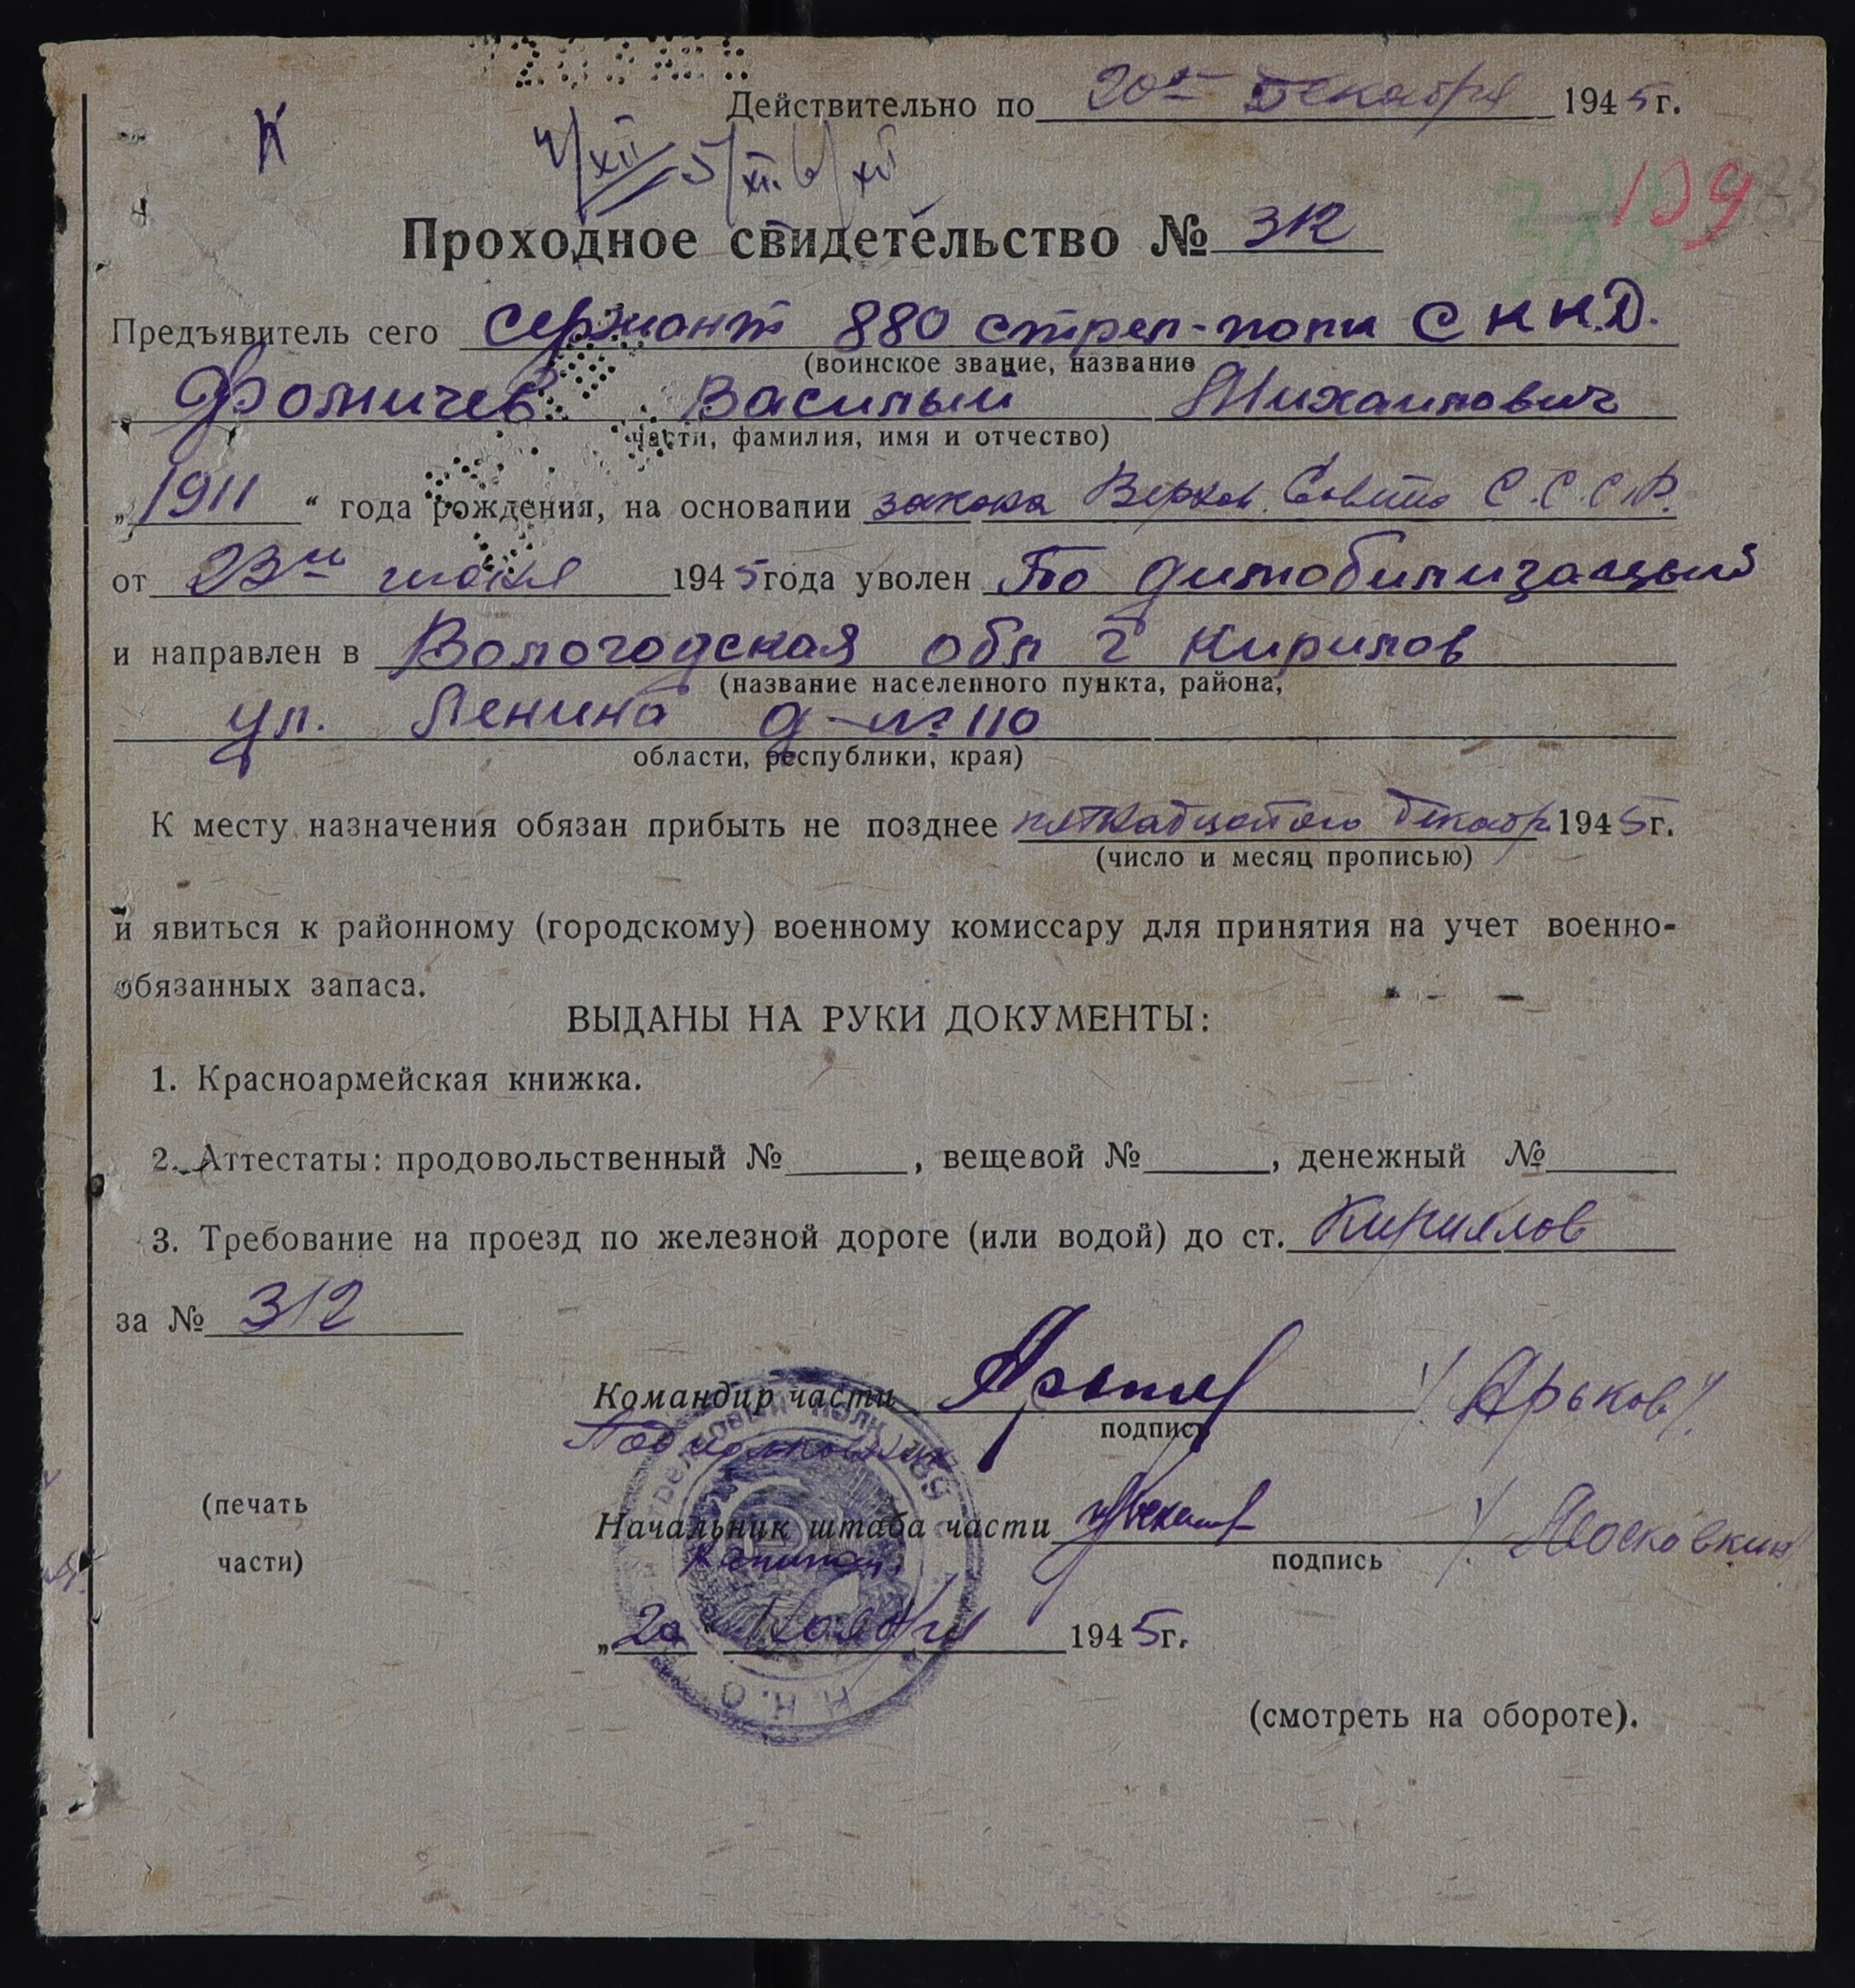 Действительно по 20е Декабря 1945г.
К
4/XII 5/XII 6/XII
199
Проходное свидетельство № 312
Предъявитель сего Сержант 880 стрел-полк С К К.Д.
(воинское звание, название
Фомичев Василый Михаилович
части, фамилия, имя и отчество)
„1911“ года рождения, на основании закона Верхов. Совета С.С.С.Р.
от 23го июня 1945 года уволен По димобилизацыи
и направлен в Вологодская обл г Кирилов
(название населенного пункта, района,
ул. Ленина д-№ 110
области, республики, края)
К месту назначения обязан прибыть не позднее пятнадцатого Декабр. 1945г.
(число и месяц прописью)
и явиться к районному (городскому) военному комиссару для принятия на учет военно-
обязанных запаса.
ВЫДАНЫ НА РУКИ ДОКУМЕНТЫ:
1. Красноармейская книжка.
2. Аттестаты: продовольственный № , вещевой № , денежный №
3. Требование на проезд по железной дороге (или водой) до ст. Кириллов
за № 312
Командир части /Ярьков/.
подпись
Подполковник
(печать
части)
Начальник штаба части /Московкин/
подпись
капитан
„20“ Ноября 1945г.
Н.К.О
(смотреть на обороте).